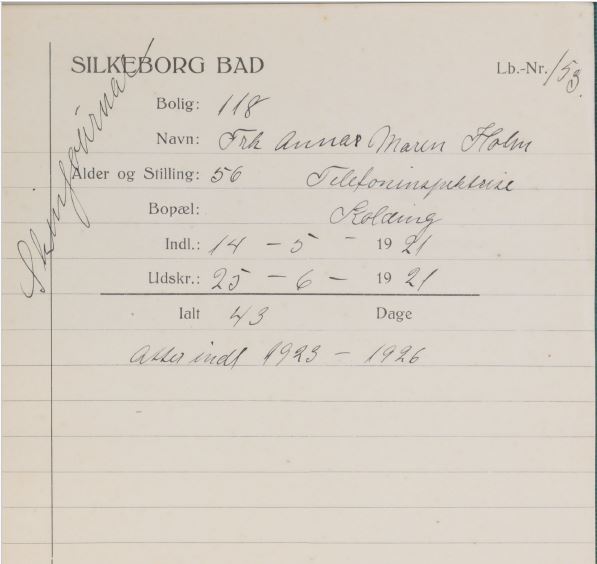 Skinjournal
SILKEBORG BAD
Lb.-Nr. 153.
Bolig: 118
Navn: Frk Anna Maren Holm
Alder og Stilling: 56 Telefoninspektrise
Bopæl: Kolding
Indl.: 14 - 5 - 1921
Udskr.: 25 - 6 - 1921
Ialt 43 Dage
Atter indl 1923 - 1926